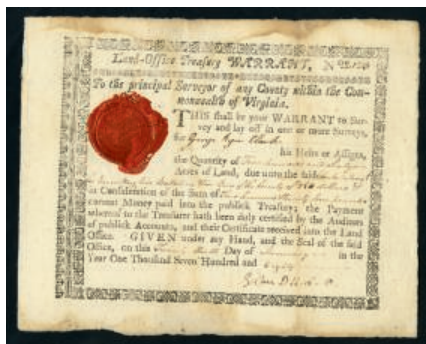 Land-Office Treasury WARRANT, N
To the principal Surveyor of any County within the Com-
monwealth of Virginia.
THIS shall be your WARRANT to Sur-
vey and lay off in one or more Surveys,
for George Rogers Clark
his Heirs or Assigns,
the Quantity of
Acres of Land, due unto the said
in Consideration of the Sum of
current Money paid into the publick Treasury; the Payment
whereof to the Treasurer hath been duly certified by the Auditors
of publick Accounts, and their Certificate received into the Land
Office. GIVEN under my Hand, and the Seal of the said
Office, on this Day of in the
Year One Thousand Seven Hundred and eighty